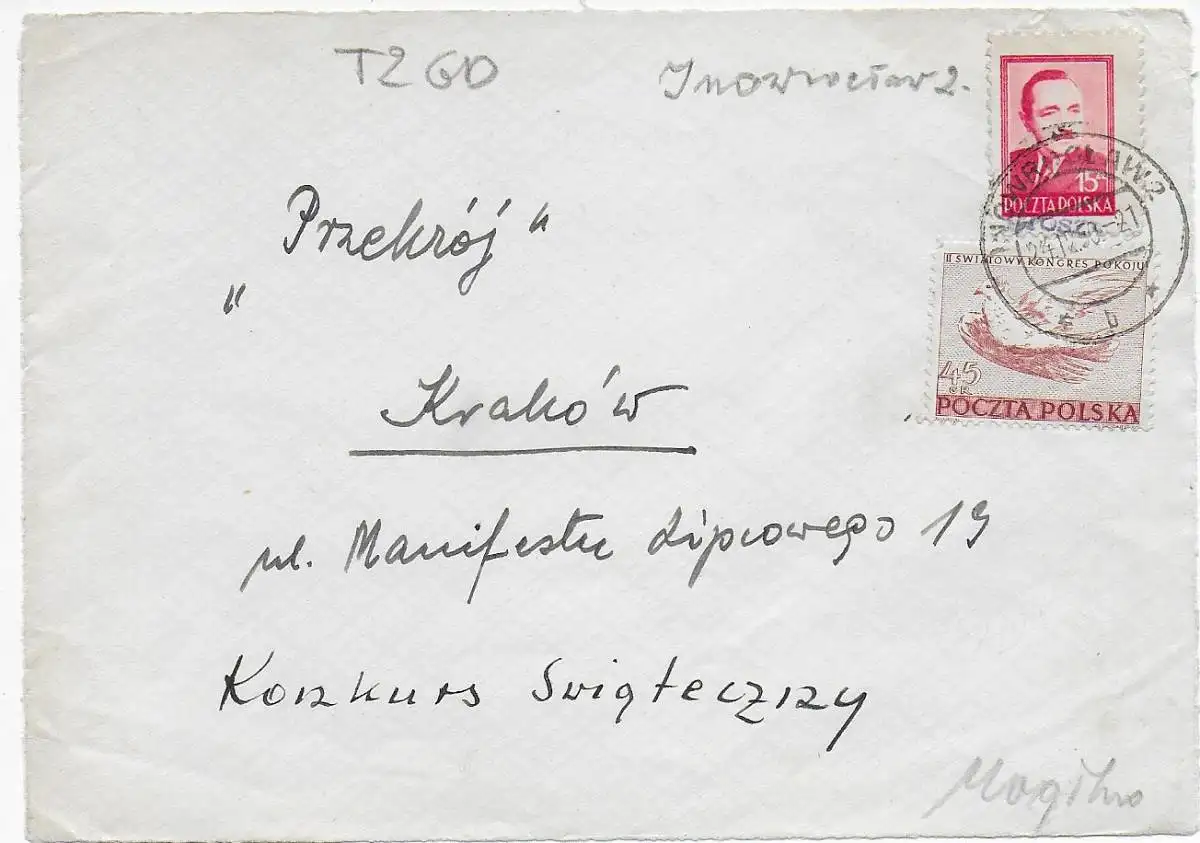 T2 GD
Inowrocław 2.
15
POCZTA POLSKA
INOWROCŁAW 2
24.12.50.-21
b
II ŚWIATOWY KONGRES POKOJU
45
GR.
POCZTA POLSKA
„Przekrój"
Kraków
ul. Manifestu Lipcowego 19
Konkurs Świąteczny
Mogilno